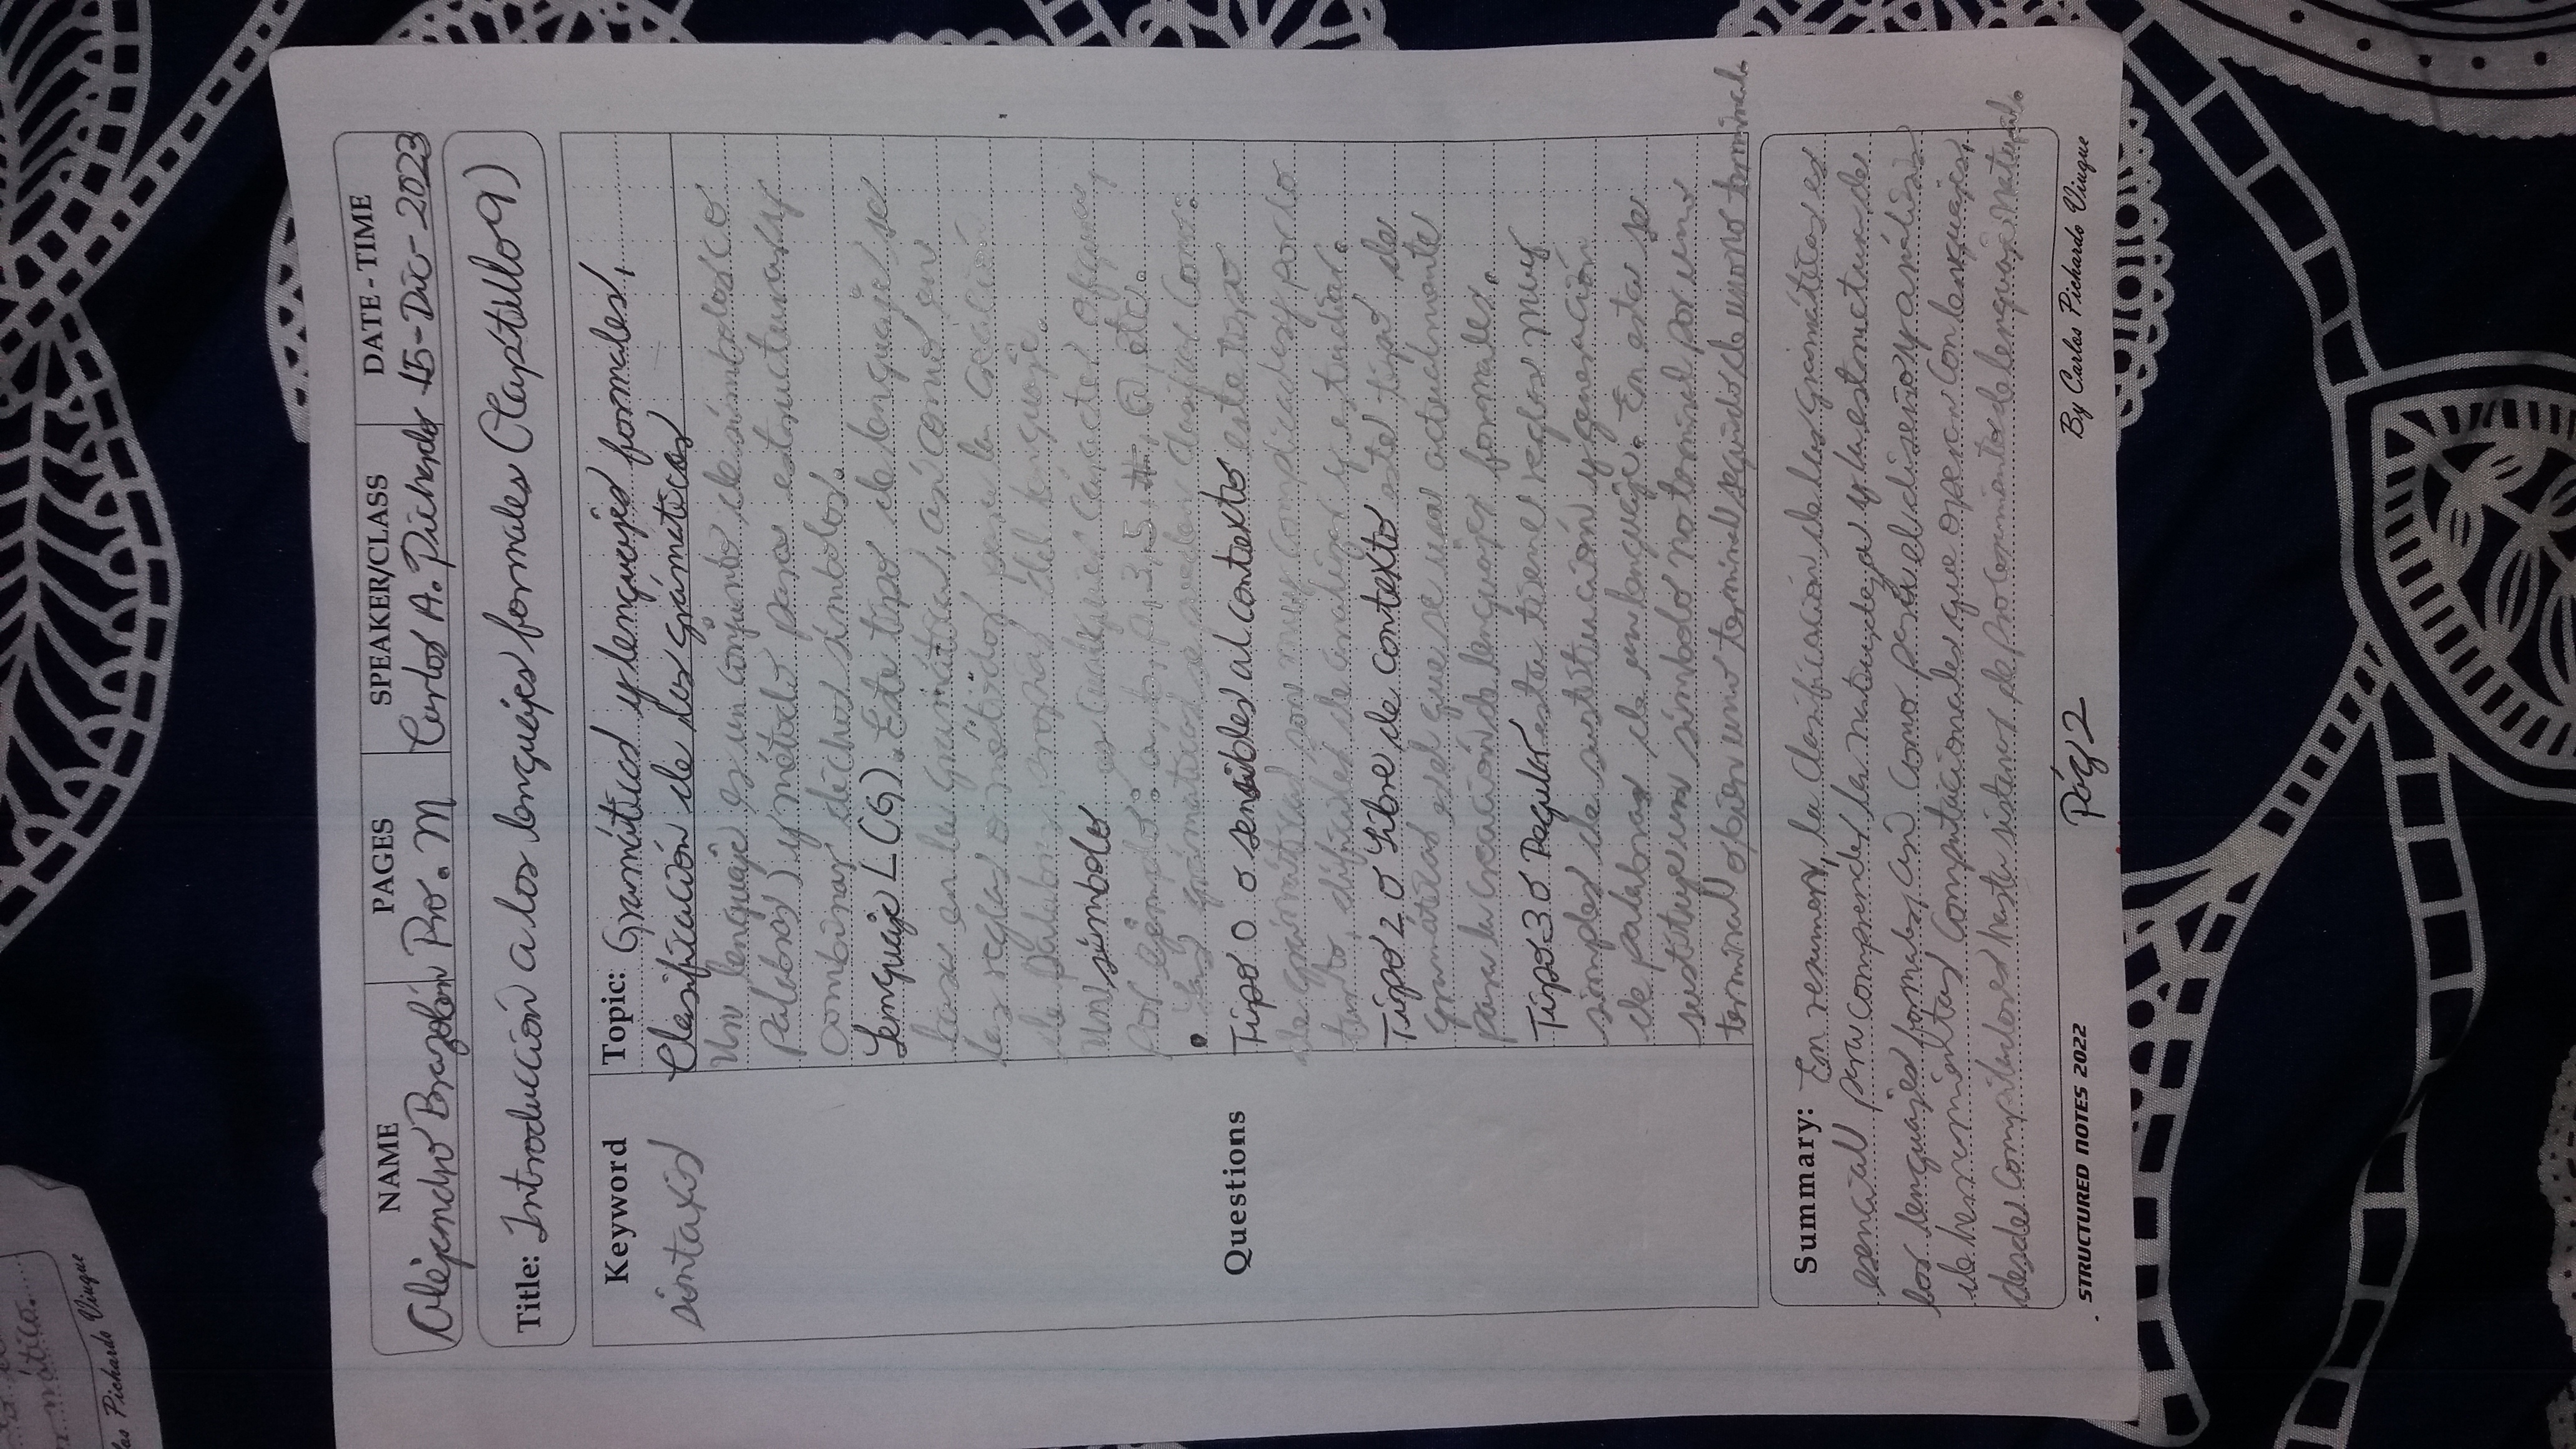 nático.
los Pichardo Vinque
NAME PAGES SPEAKER/CLASS DATE - TIME
Alejandro Brazobán Pro. M Carlos A. Pichardo 15-Dic-2023
Title: Introducción a los lenguajes formales (Capítulo 9)
Keyword Topic: Gramáticas y lenguajes formales,
sintaxis Clasificación de las grámaticas
Un lenguaje es un conjunto de símbolos (o
Palabras) y método para estructurar y
combinar dichos símbolos.
Lenguaje L(G). Este tipo de lenguaje se
basa en la gramática, así como en
las reglas o métodos para la creación
de palabras propias del lenguaje.
Un símbolo es cualquier carácter o figura,
por ejemplo: a, b, 3, 5, #, @, etc.
• Las grámaticas se pueden clasificar como:
Questions Tipo 0 o sensibles al contexto este tipo
de grámáticas son muy complicadas y por lo
tanto, difíciles de analizar y estudiar.
Tipo 2 o Libre de contexto este tipo de
gramáticas es el que se usa actualmente
para la creación de lenguajes formales.
Tipo 3 o Regular esta tiene reglas muy
simples de sustitución y generación
de palabras de un lenguaje. En esta se
sustituye un símbolo no terminal por uno
terminal o bien uno terminal seguido de uno no terminal.
Summary: En resumen, la clasificación de las gramáticas es
esencial para comprender la naturaleza y la estructura de
los lenguajes formales, así como para el diseño y análisis
de herramientas computacionales que operan con lenguajes,
desde compiladores hasta sistemas de procesamiento de lenguaje natural.
STRUCTURED NOTES 2022 Pág 2 By Carlos Pichardo Vinque